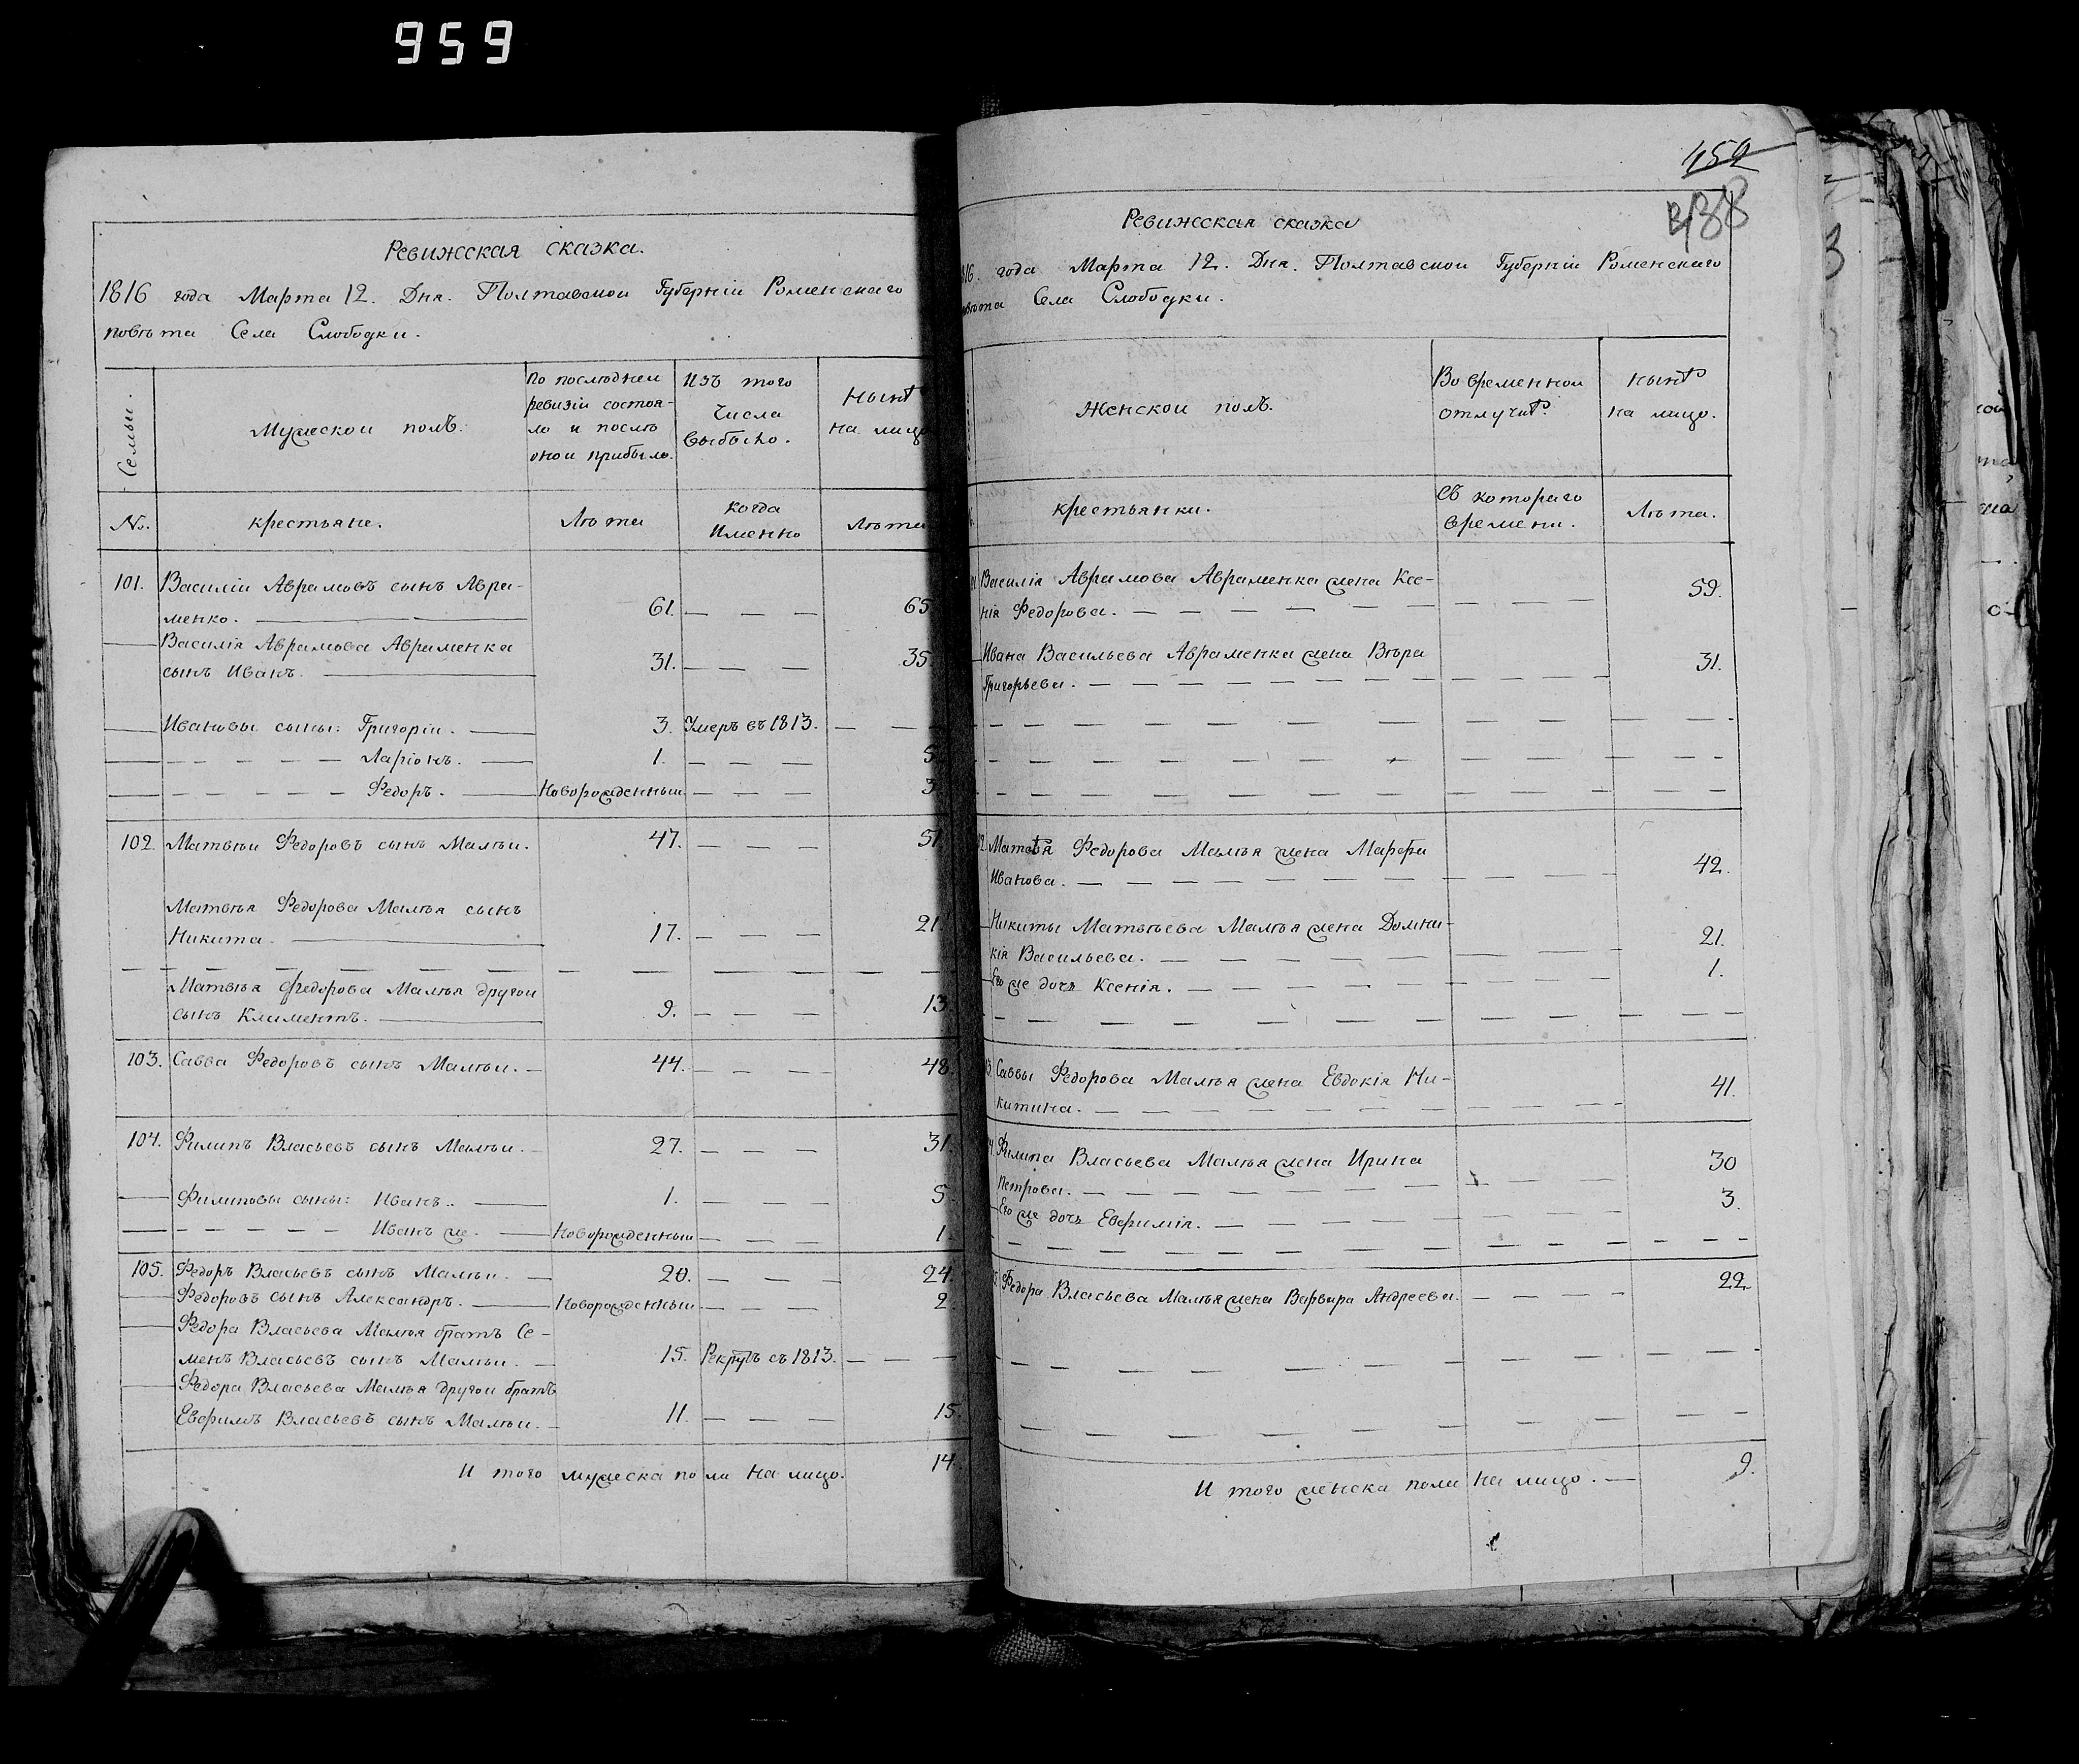 959
Ревижская сказка.
1816 года Марта 12. Дня. Полтавской Губерніи Роменскаго
повѣта Села Слободки.
Семьи.
Мужеской полъ.
По последнеи
ревизіи состоя-
ло и послѣ
оной прибыло.
Изъ того
числа
выбыло.
Нынѣ
на лицо
№.
крестьяне.
Лѣта
когда
Именно
Лѣта
101. Василіи Аврамовъ сынъ Авра-
менко. 61. 65
Василія Аврамова Авраменка
сынъ Иванъ. 31. 35
Ивановы сыны: Григоріи. 3. Умеръ въ 1813.
Ларіонъ. 1. 5
Федоръ. Новорожденныи 3
102. Матвѣи Федоровъ сынъ Малѣи. 47. 51
Матвѣя Федорова Малѣя сынъ
Никита. 17. 21
Матвѣя Федорова Малѣя другои
сынъ Климентъ. 9. 13
103. Савва Федоровъ сынъ Малѣи. 44. 48
104. Филипъ Власьевъ сынъ Малѣи. 27. 31
Филиповы сыны: Иванъ. 1. 5
Иванъ же. Новорожденныи 1
105. Федоръ Власьевъ сынъ Малѣи. 20. 24.
Федоровъ сынъ Александръ. Новорожденныи 2
Федора Власьева Малѣя братъ Се-
менъ Власьевъ сынъ Малѣи. 15. Рекрутъ съ 1813.
Федора Власьева Малѣя другои братъ
Евфимъ Власьевъ сынъ Малѣи. 11. 15.
И того мужеска пола на лицо. 14
459
438
Ревижская сказка
816. года Марта 12. Дня. Полтавской Губерніи Роменскаго
повѣта Села Слободки.
Женской полъ.
Во временнои
отлучкѣ.
нынѣ
на лицо.
крестьянки.
Съ котораго
времени.
Лѣта.
Василія Аврамова Авраменка жена Ксе-
нія Федорова. 59.
Ивана Васильева Авраменка жена Вѣра
Григорьева. 31.
Матвѣя Федорова Малѣя жена Марфа
Иванова. 42.
Никиты Матвѣева Малѣя жена Домни-
кія Васильева. 21.
Его же дочь Ксенія. 1.
Саввы Федорова Малѣя жена Евдокія Ни-
китина. 41.
Филипа Власьева Малѣя жена Ирина
Петрова. 30
Его же дочь Евфимія. 3.
Федора Власьева Малѣя жена Варвара Андреева. 22
И того женска пола на лицо. 9.